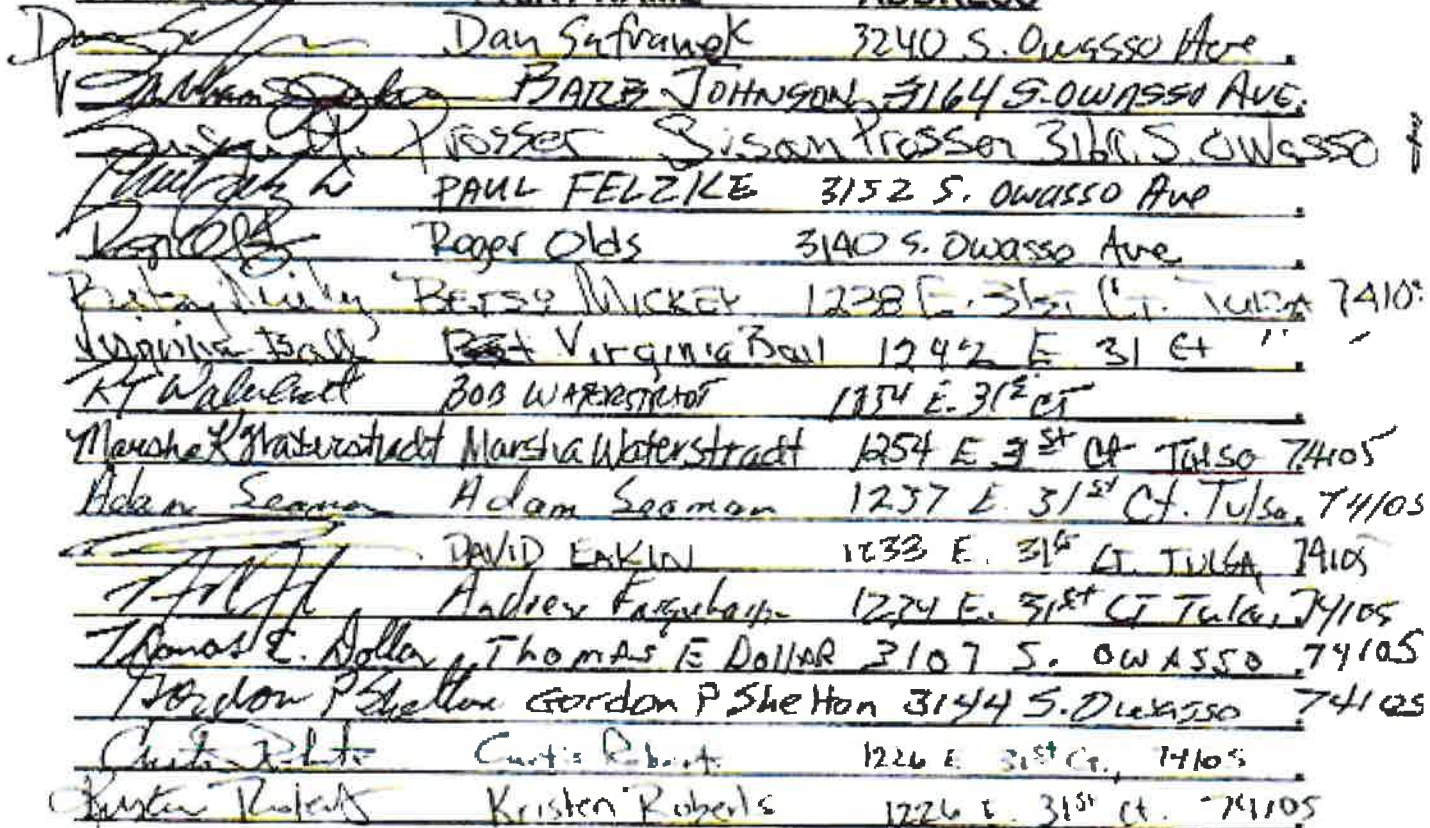 PRINT NAME ADDRESS
Dan Safranek 3240 S. Owasso Ave.
BARB JOHNSON 3164 S. OWASSO AVE.
Susan Prosser Susan Prosser S. Owasso
PAUL FELZKE 3152 S. Owasso Ave
Roger Olds 3140 S. Owasso Ave
Betsy Mickey BETSY MICKEY 1238 E. 31st Ct. Tulsa 7410
Virginia Ball Virginia Ball 1242 E 31 Ct " "
BOB E. 31st CT
Marsha K Waterstradt Marsha Waterstradt 1254 E 31st Ct Tulsa 74105
Adam Seaman Adam Seaman 1237 E. 31st Ct. Tulsa, 74105
DAVID EAKIN 1233 E. 31st CT. TULSA, 74105
Andrew E. 31st CT Tulsa, 74105
Thomas E. Dollar, Thomas E DOLLAR 3107 S. OWASSO 74105
Gordon P Shelton Gordon P Shelton 3144 S. Owasso 74105
Curtis 1226 E 31st Ct., 74105
Kristen Roberts Kristen Roberts 1226 E. 31st Ct. 74105